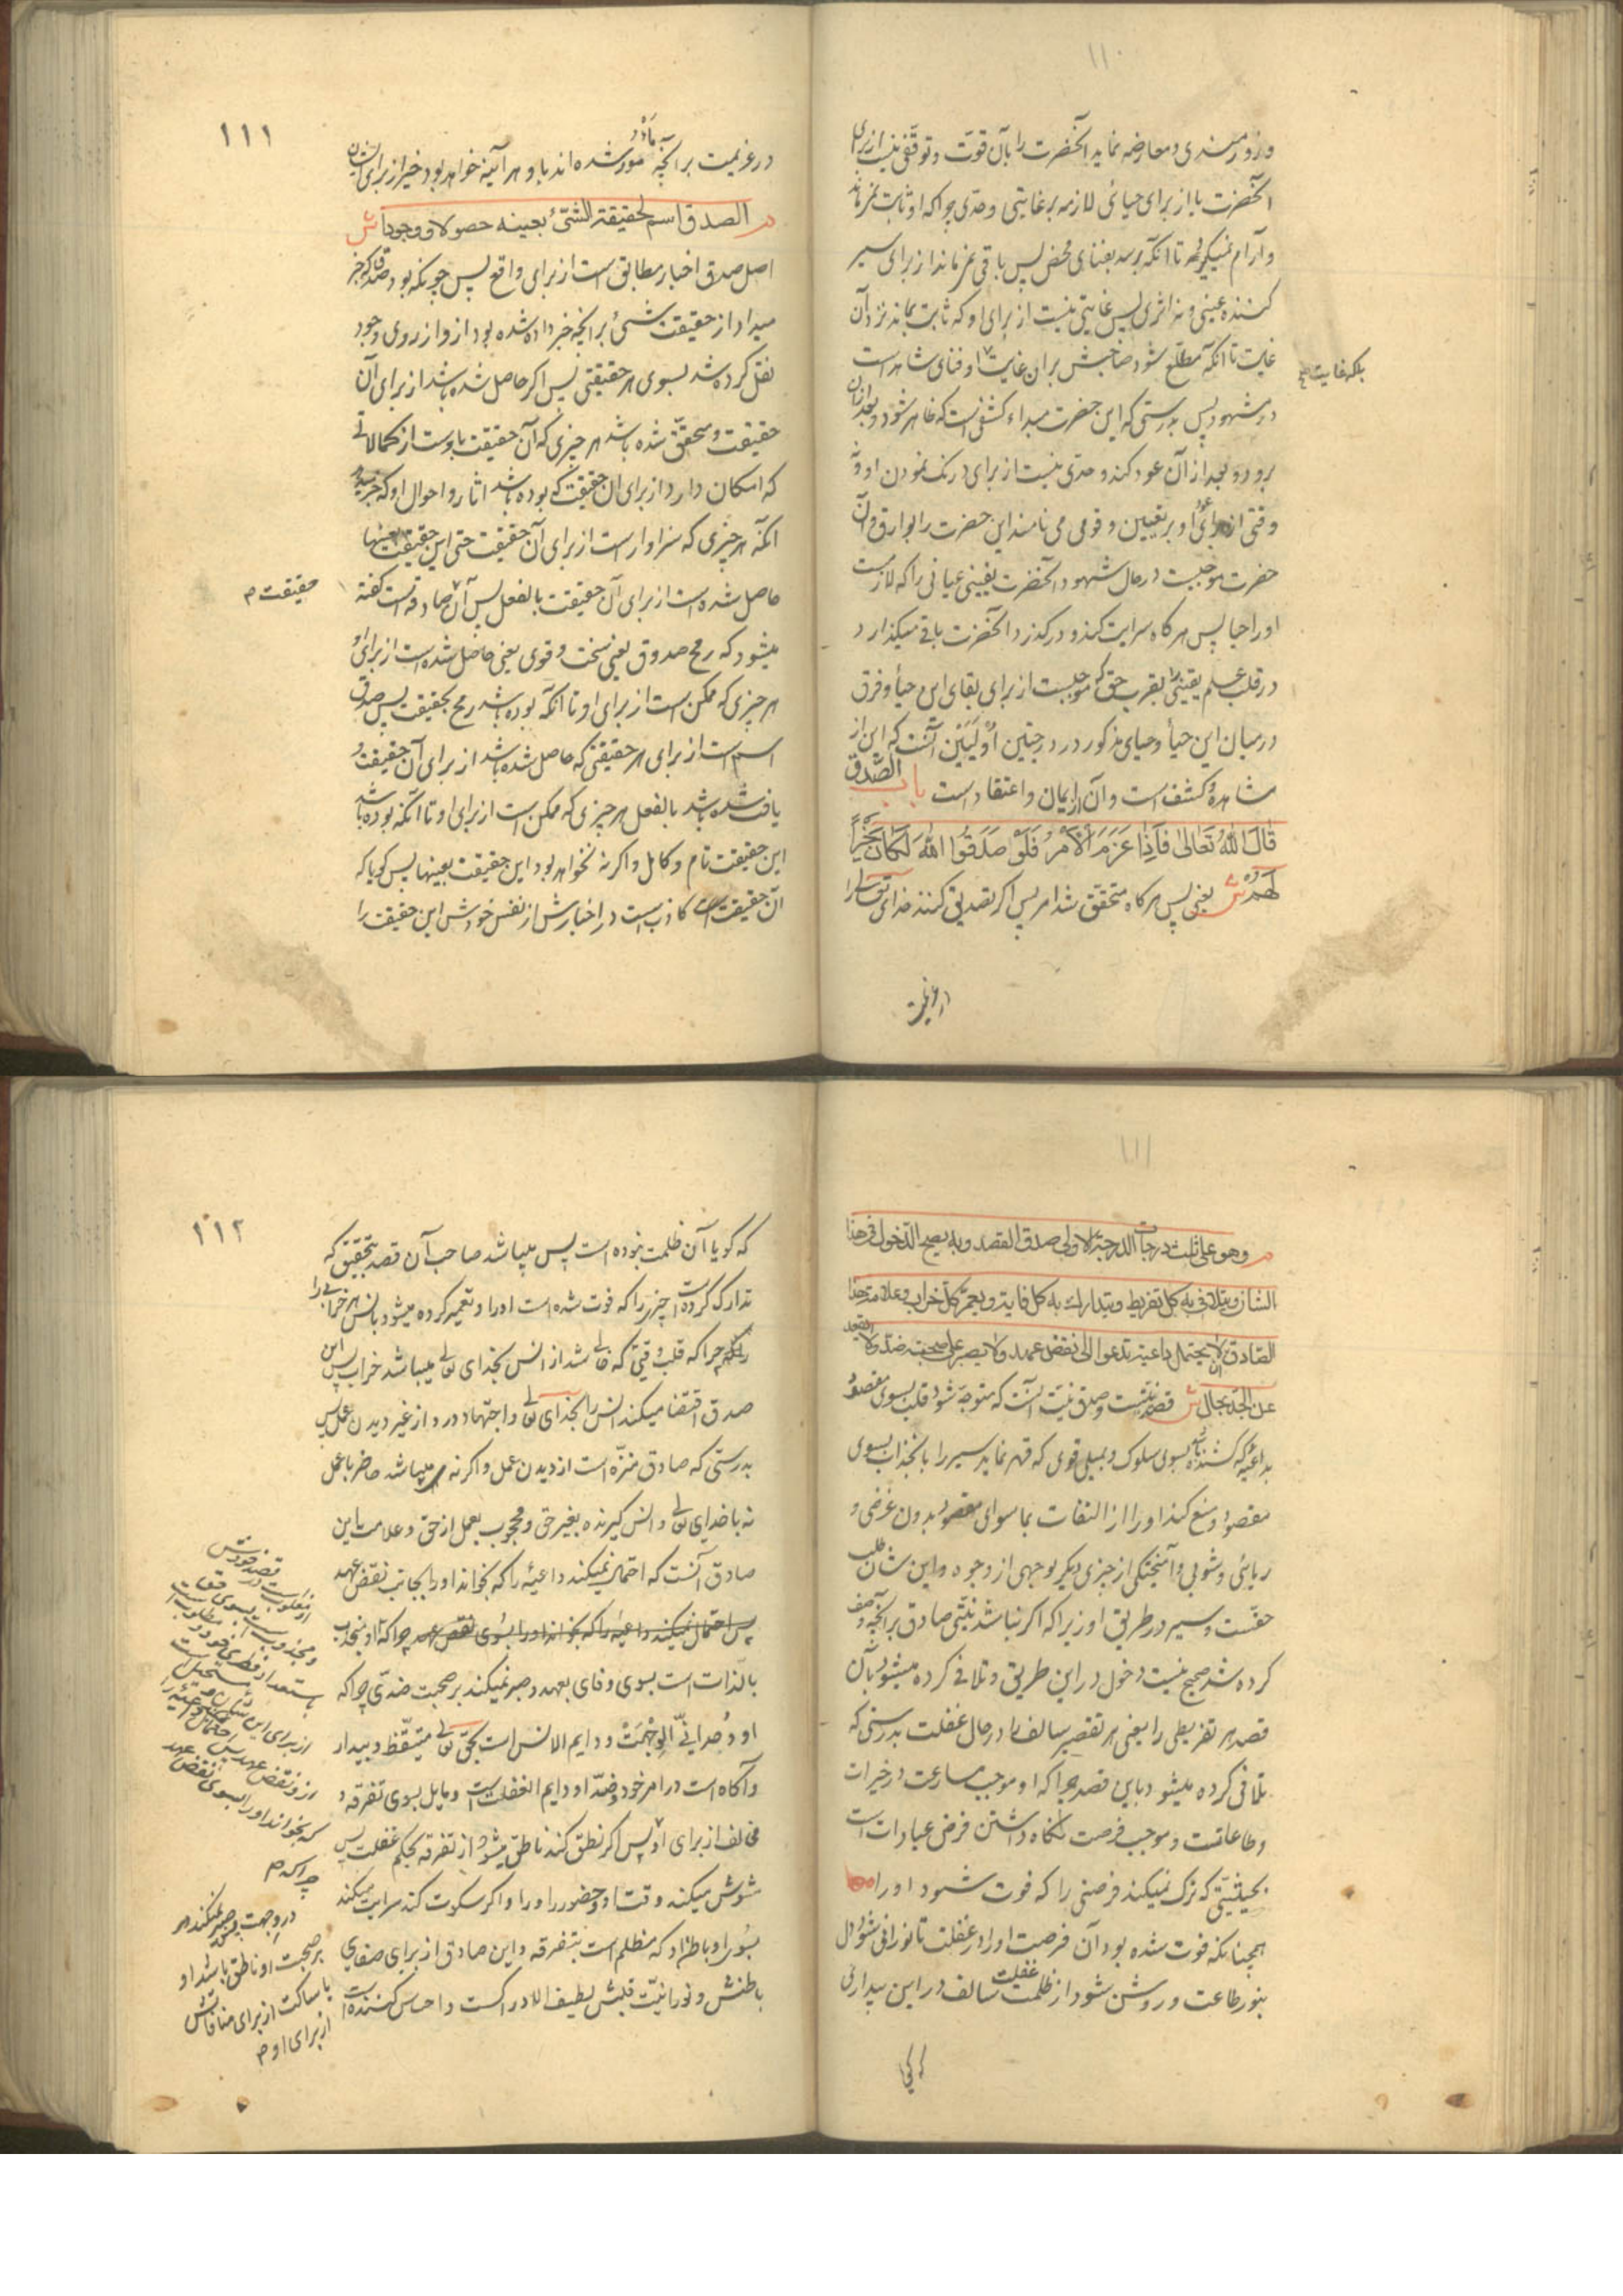 ۱۱۰
و زورمندی و معارضه نماید آنحضرت را بآن قوت و توقفی نیست از برای
آنحضرت یا از برای حیائی لازمه بر غایتی و حدی چراکه او ثابت نمی ماند
و آرام نمیگیرد تا آنکه برسد بفنای محض پس باقی نمی ماند از برای سیر
کننده عینی و نه اثری پس غایتی نیست از برای او که ثابت بماند نزد آن
غایت تا آنکه مطلع شود صاحبش بر آن غایت او فنای شاهد است
بلکه غایت
در مشهود پس بدرستی که این حضرت مبداء کشفی است که ظاهر شود و بعد از آن
برود و بعد از آن عود کند و حدی نیست از برای درنک نمودن او و نه
وقتی از برای عود او بر تعیین و قومی می نامند این حضرت را بوارق و آن
حضرت موجبست در حال شهود آنحضرت یقینی عیانی را که لازمست
او را حیا پس هرکاه سرایت کند و درکذرد آنحضرت باقی میکذارد
در قلب علم یقینی را بقرب حق که موجبست از برای بقای این حیاء و فرق
در میان این حیاء و حیای مذکور در درجتین اُولَیَین آنست که این از
مشاهده و کشف است و آن از ایمان و اعتقاد است باب الصدق
قَالَ اللهُ تَعَالیٰ فَاِذَا عَزَمَ الْاَمْرُ فَلَوْ صَدَقُوا اللهَ لَکَانَ خَیْراً
لَهُمْ ش یعنی پس هرکاه متحقق شد امر پس اکر تصدیق کنند خدای تعالی را
در عزیمت
۱۱۱
در عزیمت بر آنچه مامور شده اند باو هر آینه خواهد بود خیر از برای ایشان
م الصدق اسم لحقیقة الشئ بعینه حصولا و وجودا ش
اصل صدق اخبار مطابق است از برای واقع پس چونکه بود صدق که خبر
میداد از حقیقت شئ بر آنچه خبر داده شده بود از و از روی وجود
نقل کرده شد بسوی هر حقیقتی پس اکر حاصل شده باشد از برای آن
حقیقت و متحقق شده باشد هر چیزی که آن حقیقت باوست از کمالاتی
که امکان دارد از برای آن حقیقت که بوده باشد آثار و احوال او که خبر میدهد
آنکه هر چیزی که سزاوار است از برای آن حقیقت حتی این حقیقت بعینها
حاصل شده است از برای آن حقیقت بالفعل پس آن صادقه است کفته
حقیقت م
میشود که رمح صدوق یعنی سخت و قوی یعنی حاصل شده است از برای او
هر چیزی که ممکن است از برای او تا آنکه بوده باشد رمح بحقیقت پس صدق
اسم است از برای هر حقیقتی که حاصل شده باشد از برای آن حقیقت و
یافت شده باشد بالفعل هر چیزی که ممکن است از برای او تا آنکه بوده باشد
این حقیقت تام و کامل و اکرنه نخواهد بود این حقیقت بعینها پس کویا که
آن حقیقت کاذبست در اخبارش از نفس خودش این حقیقت را
۱۱۱
م وهو علی ثلث درجات الدرجة الاولی صدق القصد وبه یصح الدخول فی هذا
الشان ویتلافی به کل تفریط ویتدارک به کل فایت ویعمر کل خراب وعلامة هذا
الصادق ان لا یحتمل داعیة تدعوا الی نقض عهد ولا یصبر علی صحبة ضد ولا یقعد
عن الجد بحال ش قصد نیتست و صدق نیت آنست که متوجه شود قلب بسوی مقصود
بداعیه که کشنده باشد بسوی سلوک و بمیلی قوی که قهر نماید سیر را بانجذاب بسوی
مقصود و منع کند او را از التفات بماسوای مقصود بدون غرضی و
ریائی و شوبی و آمیختکی از چیزی دیکر بوجهی از وجوه و این شان طلب
حقست و سیر در طریق او زیراکه اکر نباشد نیتی صادق بر آنچه وصف
کرده شد صحیح نیست دخول در این طریق و تلافی کرده میشود بآن
قصد هر تفریطی را یعنی هر تقصیر سالف را در حال غفلت بدرستی که
تلافی کرده میشود باین قصد چراکه او موجب مسارعت در خیرات
و طاعاتست و موجب فرصت نکاه داشتن فرض عبادات است
بحیثیتی که ترک نمیکند فرصتی را که فوت شود او را
همچنانکه فوت شده بود آن فرصت او را در غفلت تا نورانی شود دل
بنور طاعت و روشن شود از ظلمت غفلت سالف در این بیداری
که کویا
۱۱۲
که کویا آن ظلمت نبوده است پس میباشد صاحب آن قصد بتحقیق که
تدارک کرده است چیزی را که فوت شده است او را و تعمیر کرده میشود بانس هر خرابی را
چراکه قلب وقتی که خالی شد از انس بخدای تعالی میباشد خراب پس این
صدق اقتضا میکند انس را بخدای تعالی و اجتهاد در و از غیر دیدن عمل پس
بدرستی که صادق منزه است از دیدن عمل و اکرنه میباشد حاضر با عمل
نه با خدای تعالی و انس کیرنده بغیر حق و محجوب بعمل از حق و علامت این
صادق آنست که احتمال نمیکند داعیه را که بخواند او را بجانب نقض عهد
پس احتمال نمیکند داعیه را که بخواند او را بسوی نقض عهد چراکه او منجذب
بالذات است بسوی وفای بعهد و صبر نمیکند بر صحبت ضدی چراکه
او وُحدانیّ الوجهت و دایم الانس است بحق تعالی متیقظ و بیدار
و آکاه است در امر خود و ضد او دایم الغفلت است و مایل بسوی تفرقه و
مخالف از برای او پس اکر نطق کند ناطق میشود از تفرقه بحکم غفلت پس
مشوش میکند وقت او و حضور را و را و اکر سکوت کند سرایت میکند
بسوی او باطن او که مظلم است بتفرقه و این صادق از برای صفای
باطنش و نورانیت قلبش لطیف الادراکست و احساس کننده است
قصد خودش
او مغلوبست در
و مجذوب است بسوی حق تعالی
باستعداد فطری خود و مطلوب است
از برای این شان
از و نقض عهد پس
که بخواند او را بسوی نقض عهد
چراکه م
در وجهت و صبر نمیکند هر
بر صحبت او ناطق باشد او
یا ساکت از برای منافاتش
از برای او م